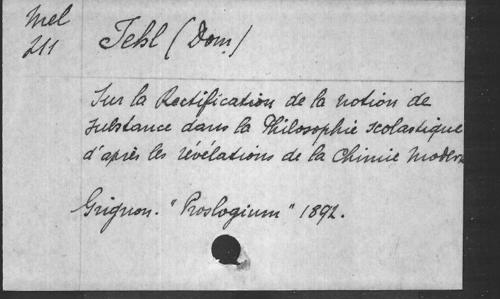 Mel
211
Jehl (Dom)
Sur la Rectification de la notion de
Substance dans la Philosophie scolastique
d'après les révélations de la Chimie Moderne
Grignon. "Proslogium" 1892.